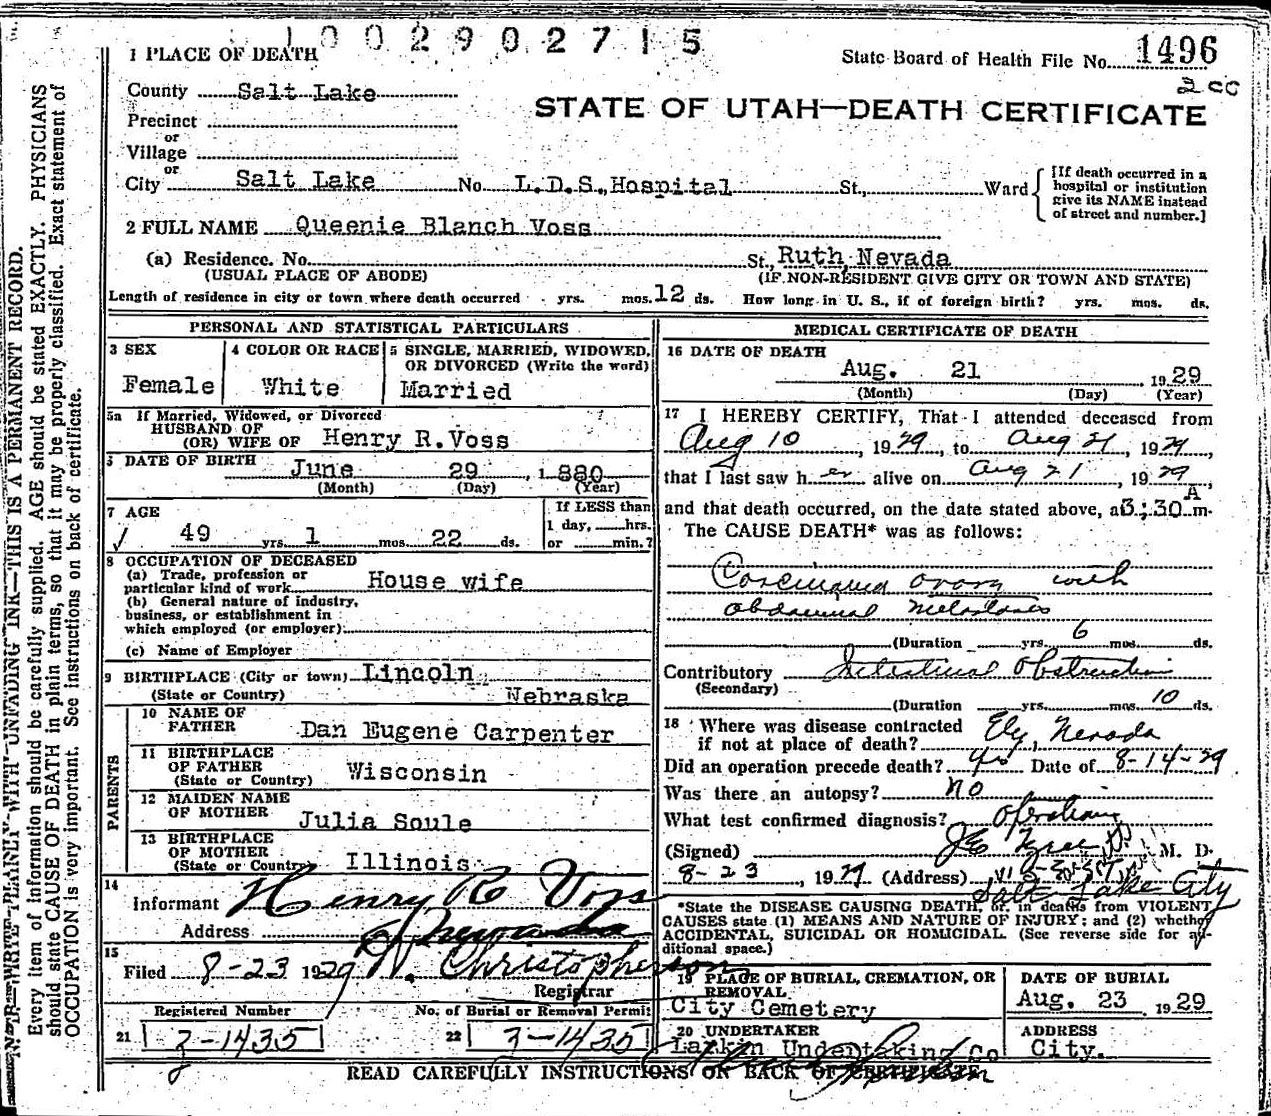 1002902715
1 PLACE OF DEATH
State Board of Health File No. 1496
2 cc
County Salt Lake
STATE OF UTAH—DEATH CERTIFICATE
Precinct
or
Village
or
City Salt Lake No L.D.S., Hospital St., Ward
[If death occurred in a hospital or institution give its NAME instead of street and number.]
2 FULL NAME Queenie Blanch Voss
(a) Residence. No. St., Ruth, Nevada
(USUAL PLACE OF ABODE) (IF NON-RESIDENT GIVE CITY OR TOWN AND STATE)
Length of residence in city or town where death occurred yrs. mos. 12 ds. How long in U. S., if of foreign birth? yrs. mos. ds.
N. B.—WRITE PLAINLY WITH UNFADING INK—THIS IS A PERMANENT RECORD.
Every item of information should be carefully supplied. AGE should be stated EXACTLY. PHYSICIANS
should state CAUSE OF DEATH in plain terms, so that it may be properly classified. Exact statement of
OCCUPATION is very important. See instructions on back of certificate.
PERSONAL AND STATISTICAL PARTICULARS
3 SEX
Female
4 COLOR OR RACE
White
5 SINGLE, MARRIED, WIDOWED,
OR DIVORCED (Write the word)
Married
5a If Married, Widowed, or Divorced
HUSBAND OF
(OR) WIFE OF Henry R. Voss
DATE OF BIRTH June 29, 1880
(Month) (Day) (Year)
7 AGE
49 yrs. 1 mos. 22 ds.
If LESS than
1 day, hrs.
or min.?
8 OCCUPATION OF DECEASED
(a) Trade, profession or
particular kind of work House wife
(b) General nature of industry,
business, or establishment in
which employed (or employer)
(c) Name of Employer
9 BIRTHPLACE (City or town) Lincoln
(State or Country) Nebraska
PARENTS
10 NAME OF
FATHER Dan Eugene Carpenter
11 BIRTHPLACE
OF FATHER
(State or Country) Wisconsin
12 MAIDEN NAME
OF MOTHER Julia Soule
13 BIRTHPLACE
OF MOTHER
(State or Country) Illinois
14
Informant Henry R Voss
Address
15
Filed 8-23 1929 W. Christopherson
Registrar
Registered Number No. of Burial or Removal Permit
21 3-1435 22 3-1435
MEDICAL CERTIFICATE OF DEATH
16 DATE OF DEATH
Aug. 21 1929
(Month) (Day) (Year)
17 I HEREBY CERTIFY, That I attended deceased from
Aug 10, 1929, to Aug 21, 1929,
that I last saw her alive on Aug 21, 1929,
and that death occurred, on the date stated above, at 3:30 A m.
The CAUSE DEATH* was as follows:
Carcinoma ovary with
abdominal metastases
(Duration yrs. 6 mos. ds.
Contributory Intestinal Obstruction
(Secondary)
(Duration yrs. mos. 10 ds.
18 Where was disease contracted
if not at place of death? Ely, Nevada
Did an operation precede death? yes Date of 8-14-29
Was there an autopsy? no
What test confirmed diagnosis? Operation
(Signed) M. D.
8-23, 1929 (Address)
Salt Lake City
*State the DISEASE CAUSING DEATH, or, in deaths from VIOLENT
CAUSES state (1) MEANS AND NATURE OF INJURY; and (2) whether
ACCIDENTAL, SUICIDAL OR HOMICIDAL. (See reverse side for ad-
ditional space.)
19 PLACE OF BURIAL, CREMATION, OR
REMOVAL
City Cemetery
DATE OF BURIAL
Aug. 23 1929
20 UNDERTAKER
Larkin Undertaking Co
ADDRESS
City.
READ CAREFULLY INSTRUCTIONS ON BACK OF CERTIFICATE